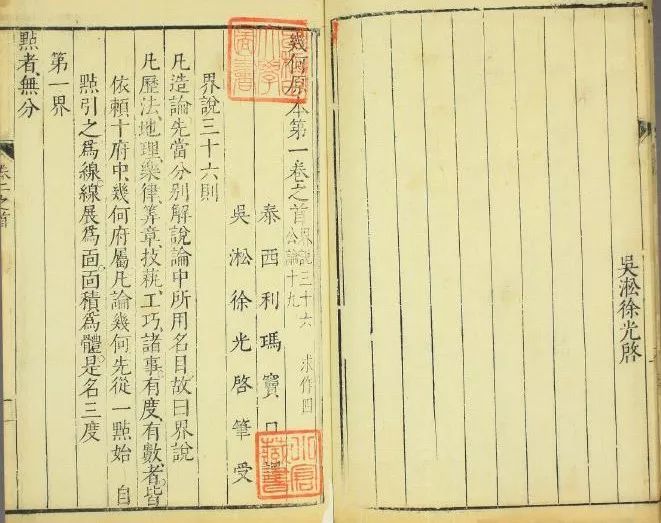 吳淞徐光啓
幾何原本第一卷之首 界說三十六 求作四
公論十九
泰西利瑪竇口
吳淞徐光啓筆受
界說三十六則
凡造論先當分別解說論中所用名目故曰界說
凡歷法、地理、樂律、筭章、技藝、工巧、諸事有度、有數者、皆
依賴十府中、幾何府屬凡論幾何先從一點始 自
點引之爲線線展爲面、面積爲體是名三度
第一界
點者、無分
卷一之首
一